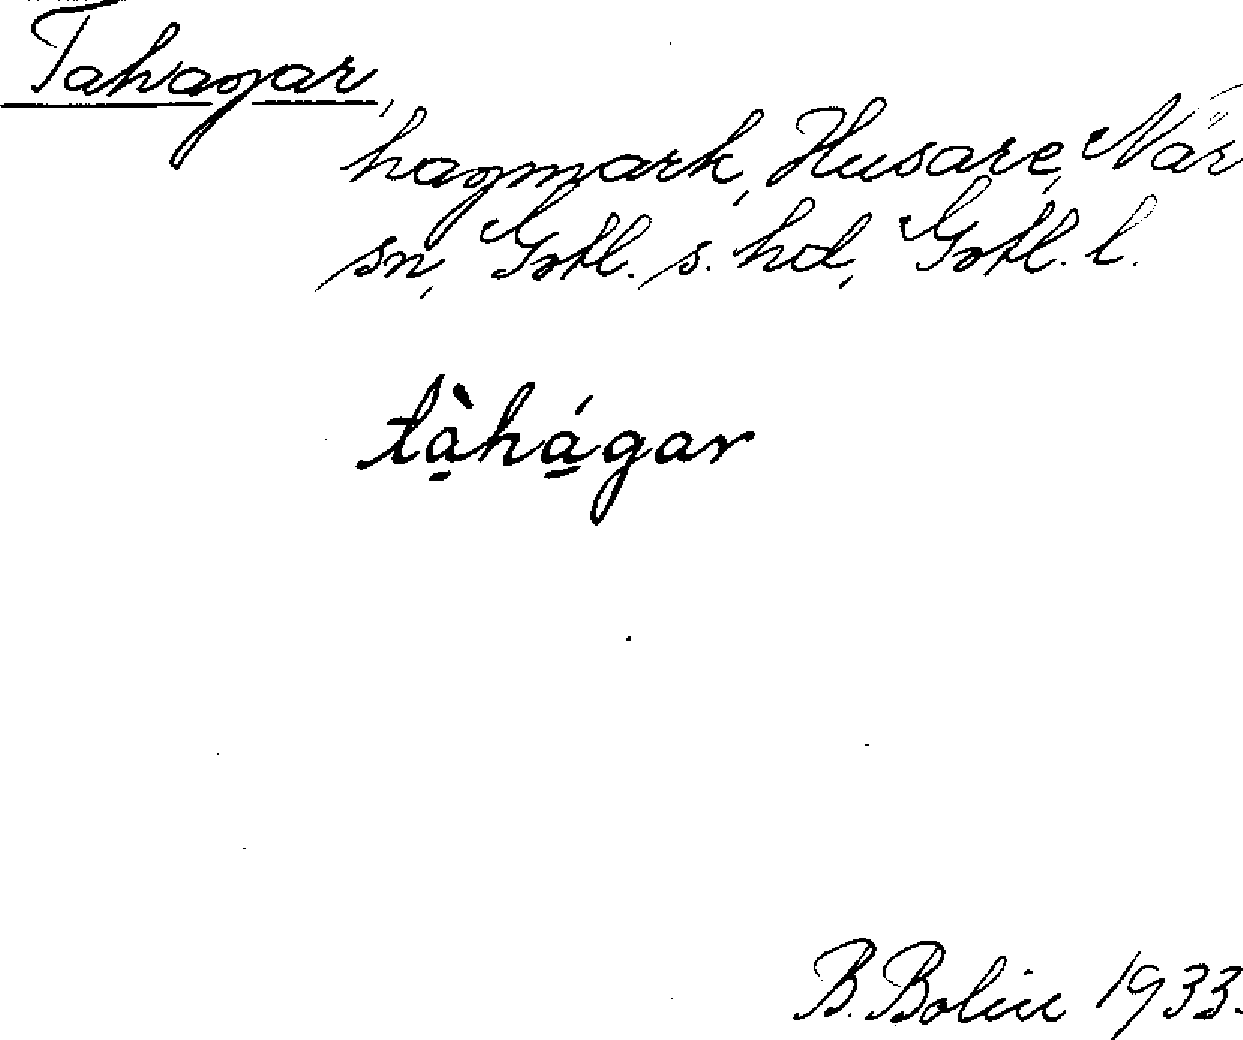 Tahagar,
hagmark, Husare, När
sn, Gotl. s. hd, Gotl. l.
tạ̀hạ́gar
B. Bolin 1933.